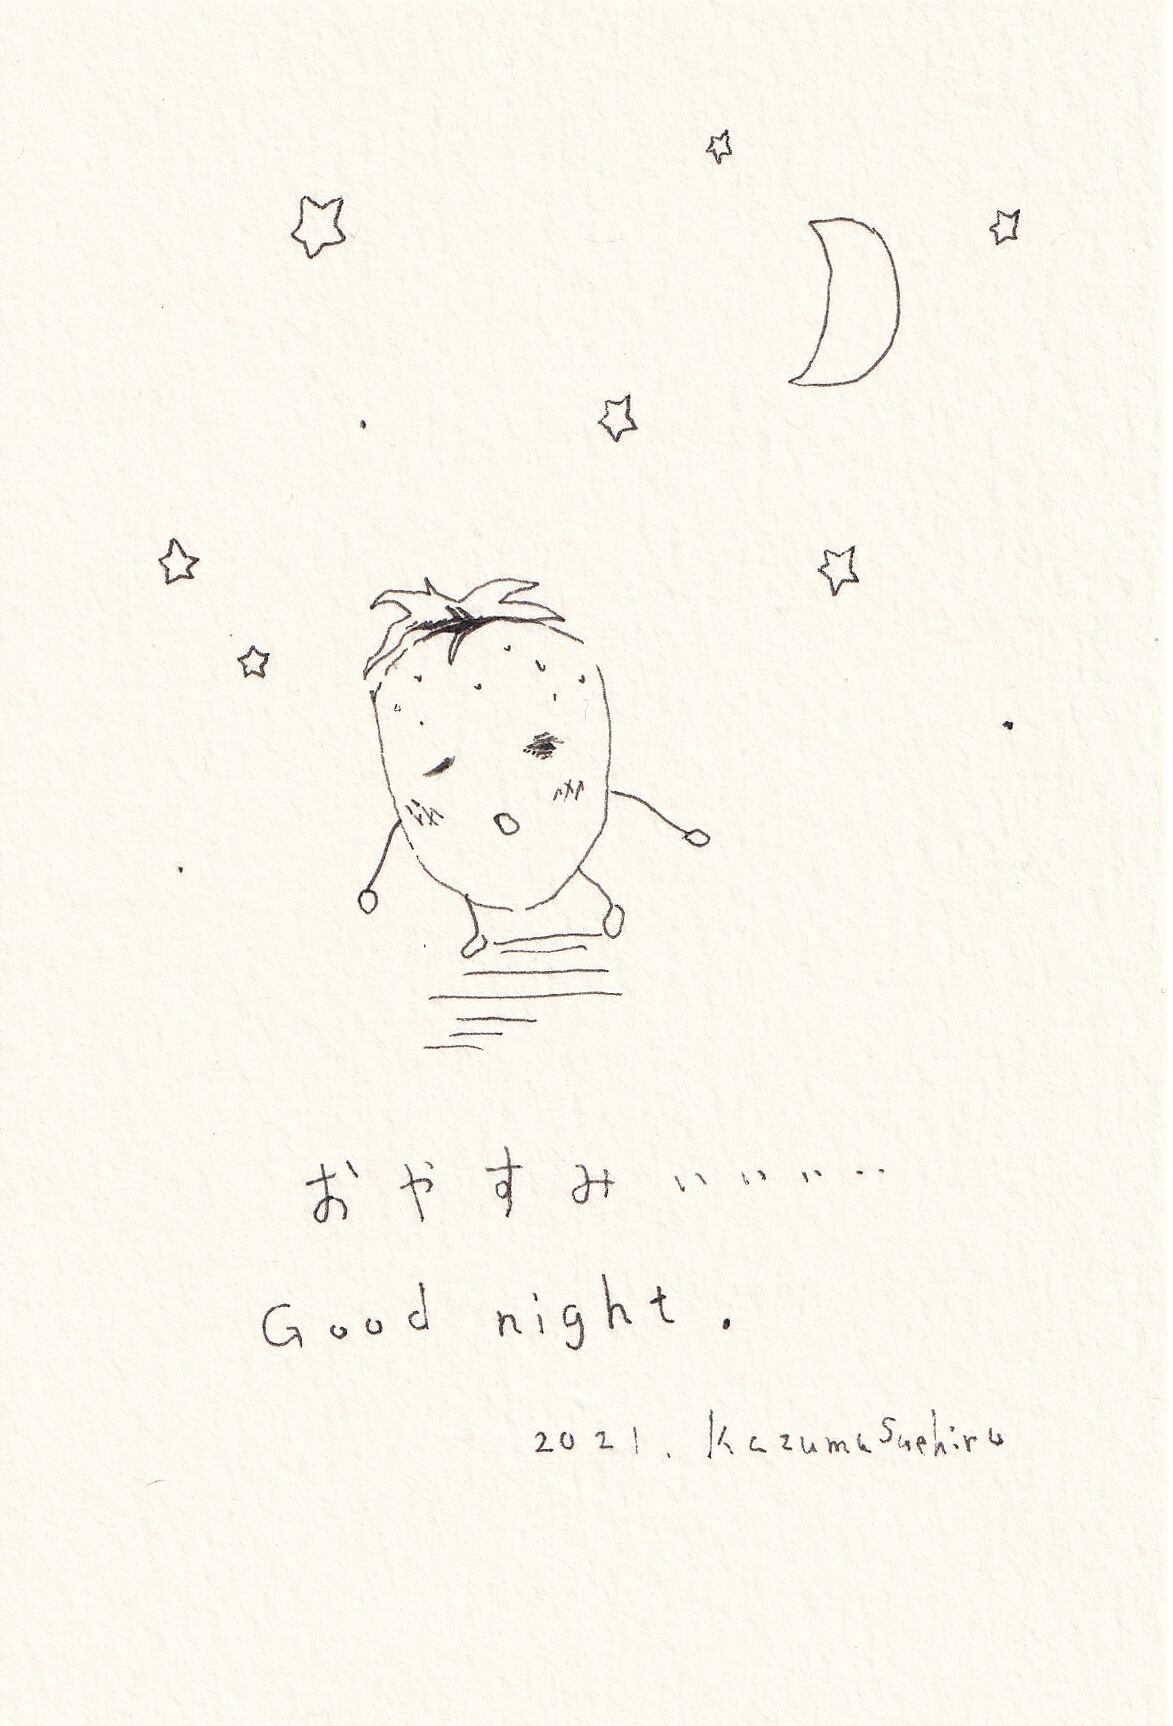 おやすみ ぃぃぃ‥
Good night.
2021. Kazuma Suehiro